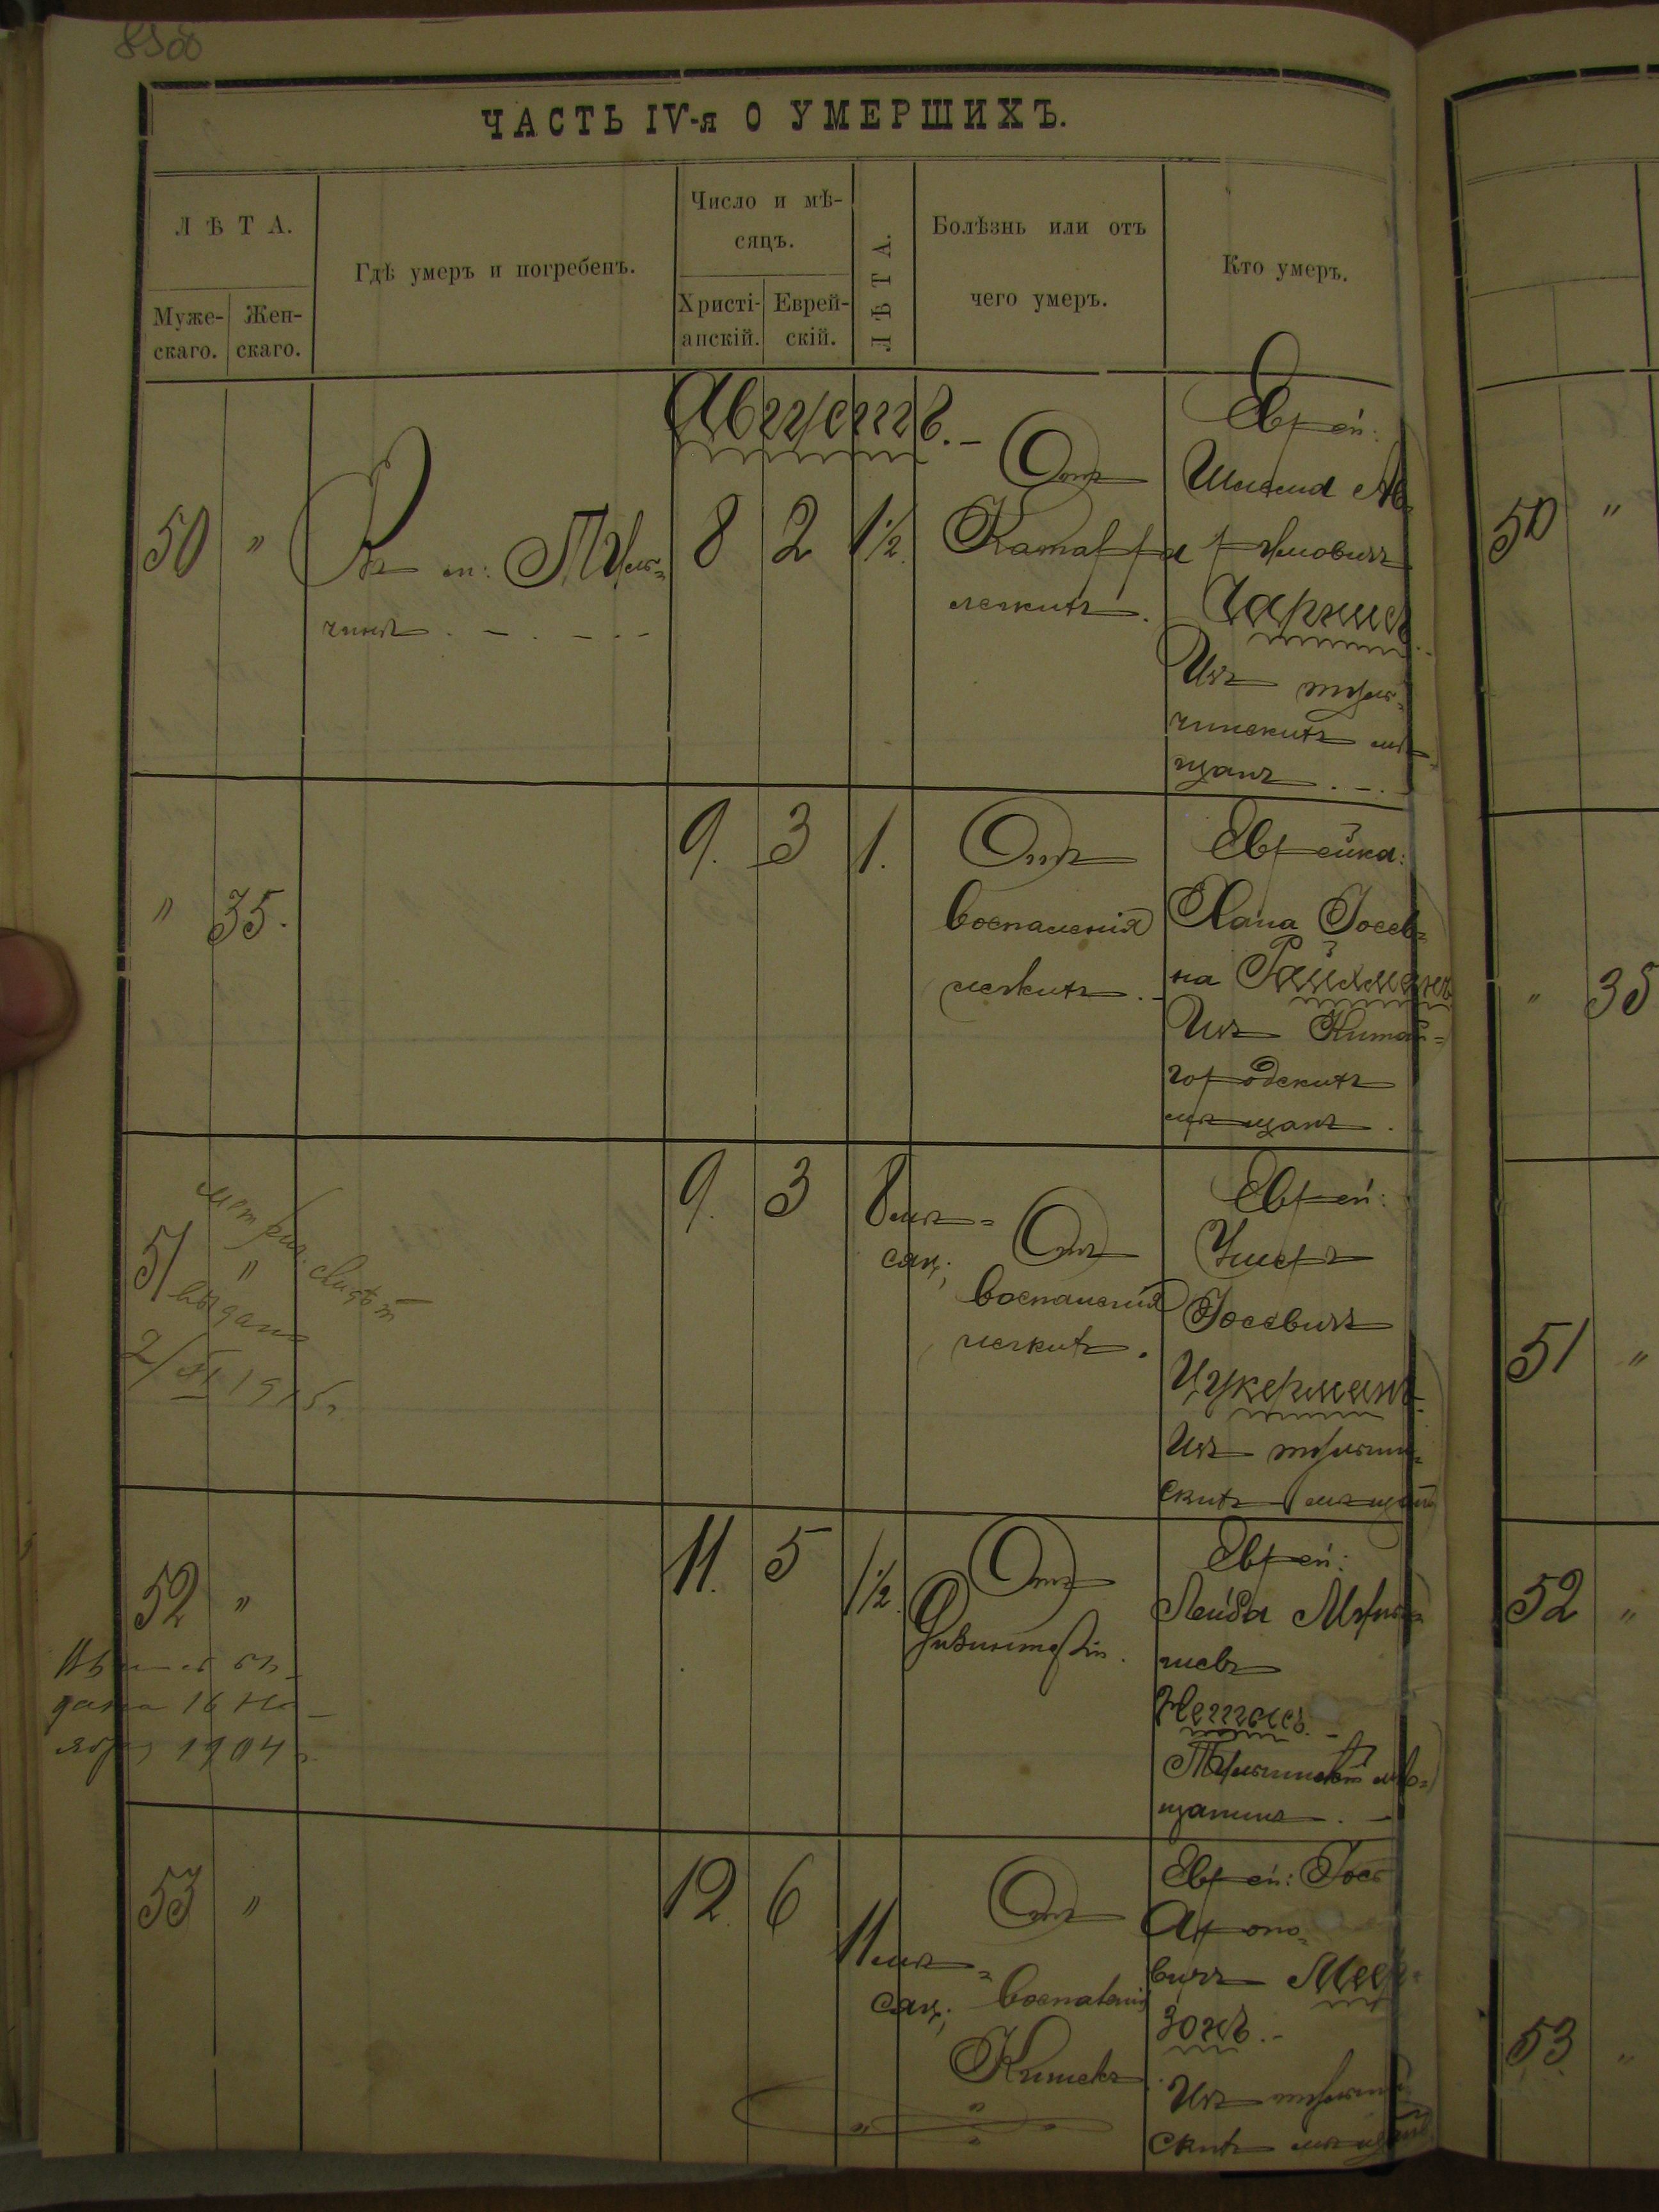 8508
ЧАСТЬ IV-я О УМЕРШИХЪ.
ЛѢТА.
Муже-
скаго.
Жен-
скаго.
Гдѣ умеръ и погребенъ.
Число и мѣ-
сяцъ.
Христі-
анскій.
Еврей-
скій.
ЛѢТА.
Болѣзнь или отъ
чего умеръ.
Кто умеръ.
Августъ. -
50 " Въ м: Туль=
чинѣ . - . - . -
8 2 1½
Отъ
Катарра
легкихъ.
Еврей:
Шлема Ав=
румовичъ
Изъ туль=
чинскихъ мѣ=
щанъ . - .
" 35.
9. 3 1.
Отъ
воспаленія
легкихъ. -
Еврейка:
Хана Іосев=
на Райхманъ
Изъ Китай=
городскихъ
мѣщанъ.
51 "
выданъ
2/XI 1915 г.
9. 3 8 мѣ=
сяц;
Отъ
воспаленія
легкихъ.
Еврей:
Ушеръ
Іосевичъ
Цукерманъ
Изъ тульчин=
скихъ мѣщанъ
52 "
дана 16 Но-
ября 1904 г.
11. 5 1½
Отъ
Дизинтеріи.
Еврей:
Лейба
Тульчинскій мѣ=
щанинъ . -
53 "
12. 6 11 мѣ=
сяц;
Отъ
воспаленія
Кишекъ
Еврей: Іось
Ароно=
вичъ Меер=
зонъ. -
Изъ тульчин=
скихъ мѣщанъ
50 "
" 35
51 "
52 "
53 "